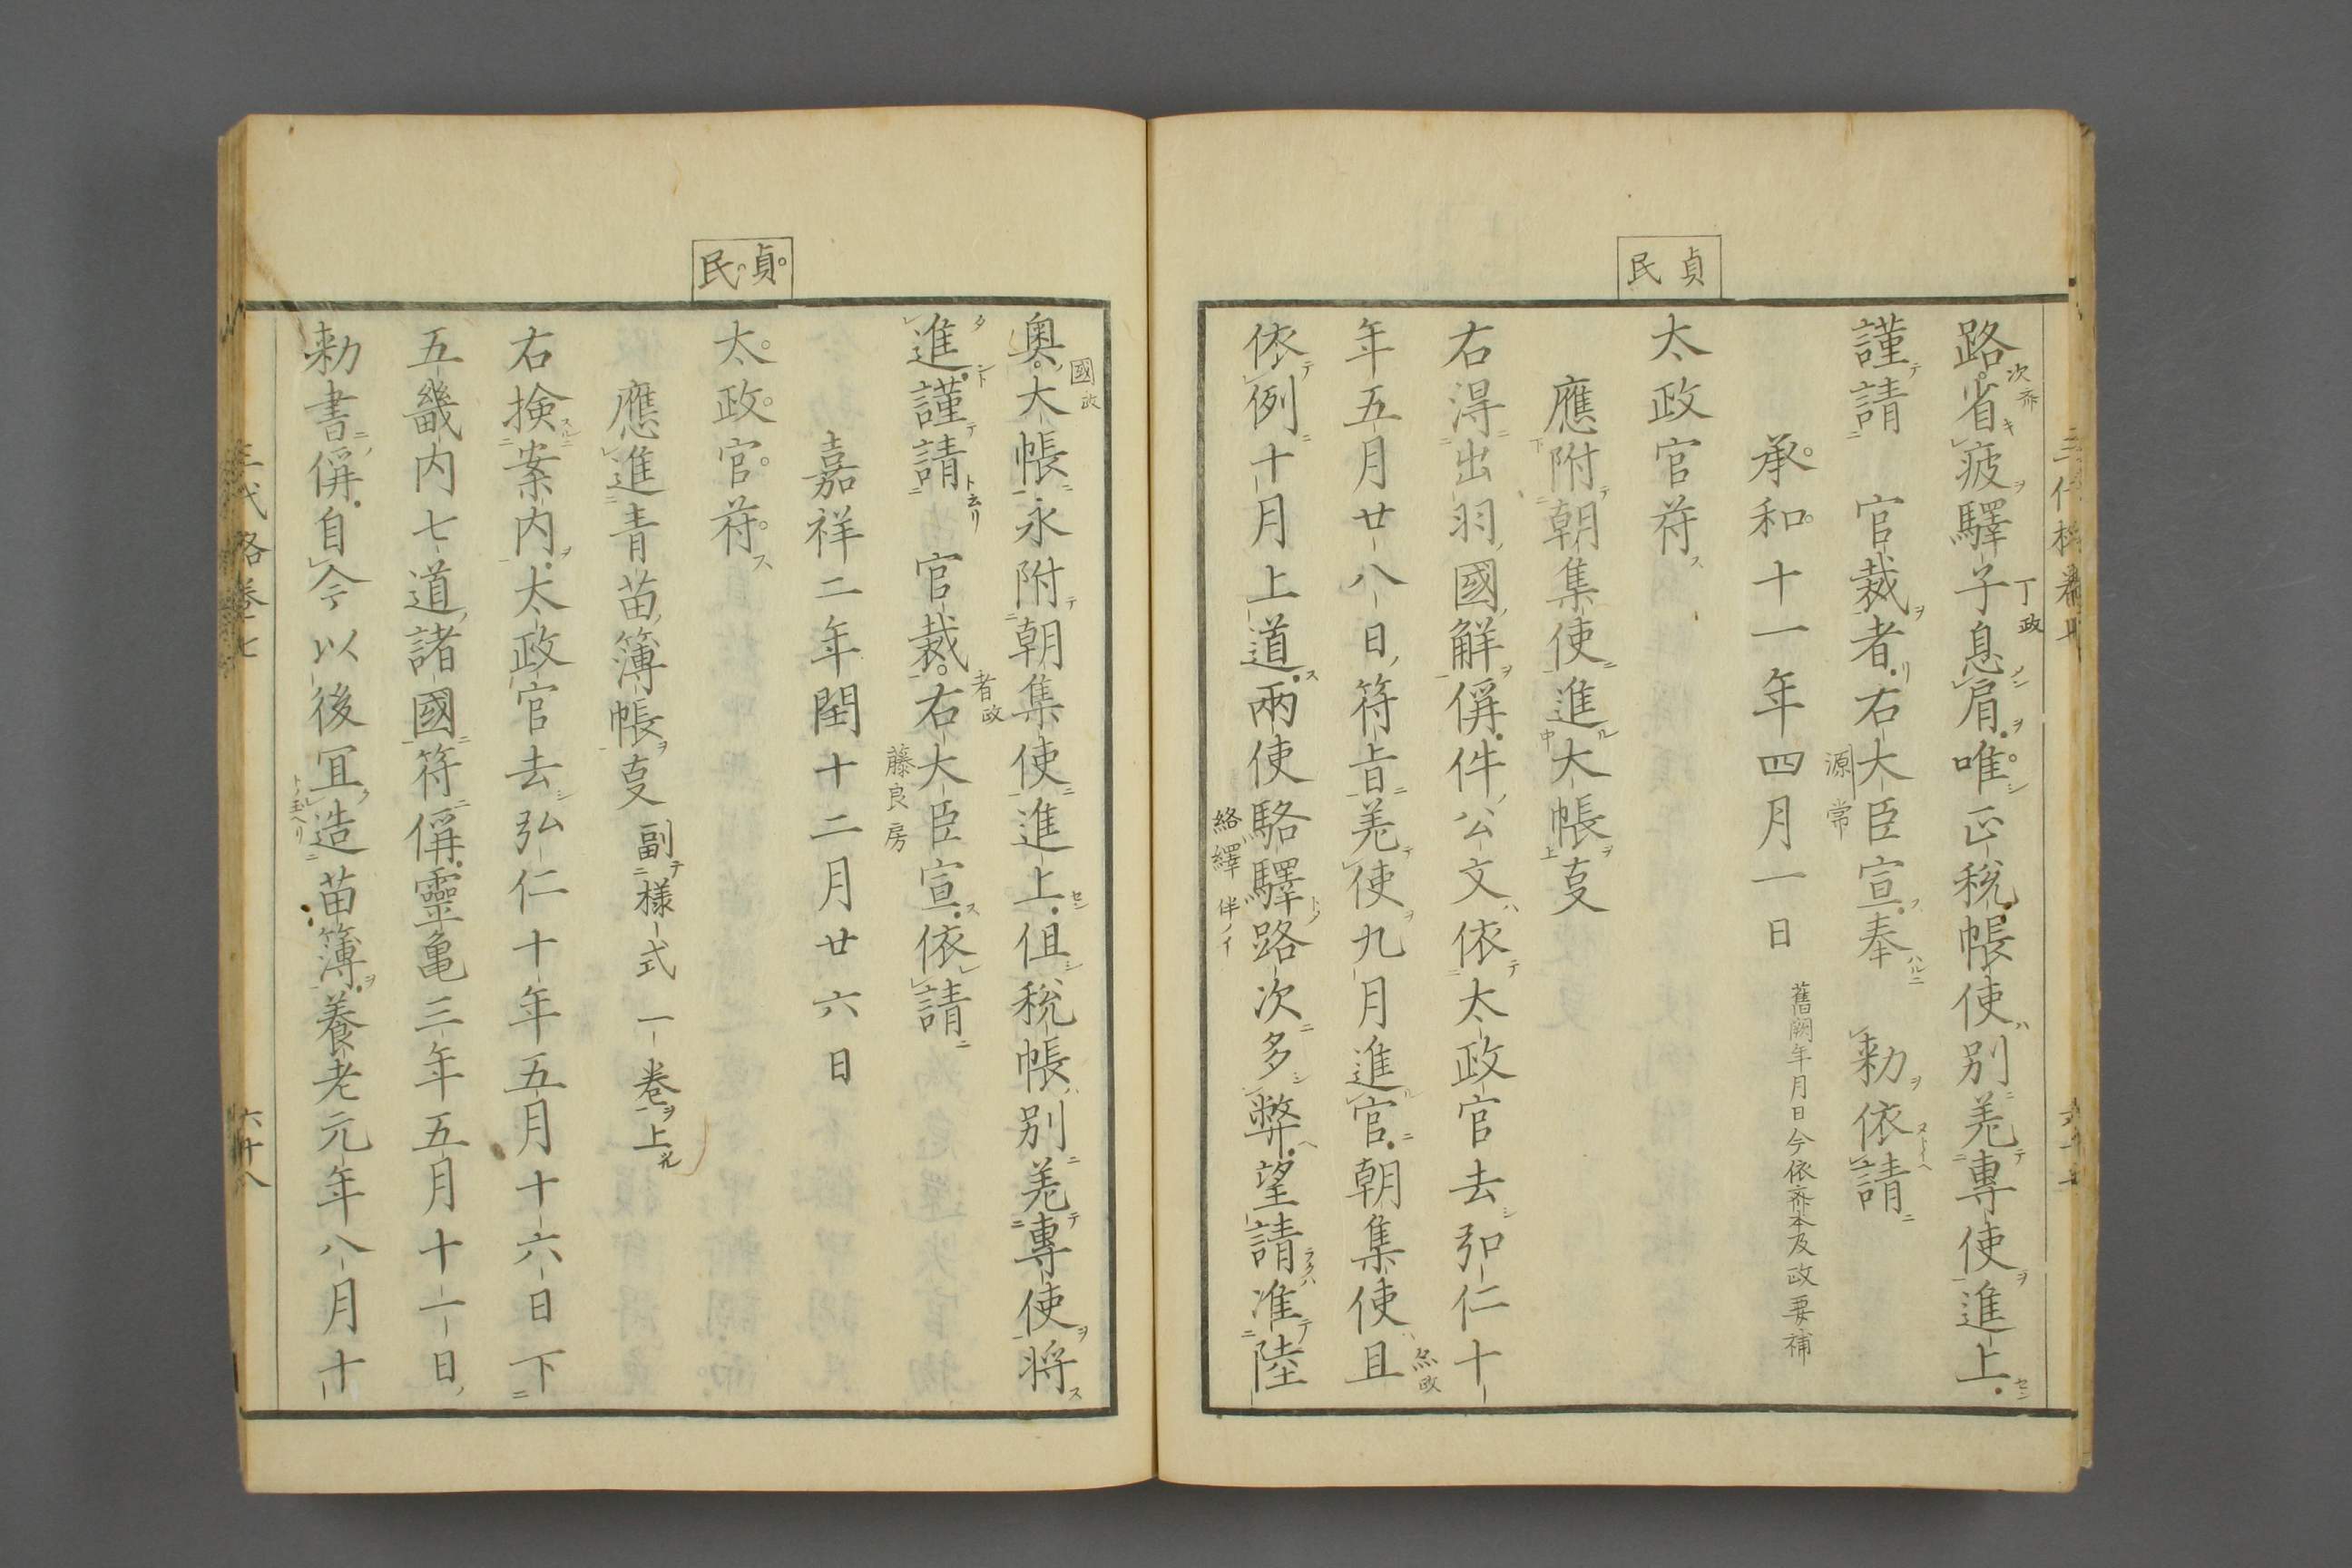 貞民
路省疲驛子息肩唯正税帳使別差專使進上
謹請官裁者右大臣宣奉勅依請
承和十一年四月一日 舊闕年月日今依齋本及政要補
太政官符
應附朝集使進大帳㕝
右得出羽國解偁件公文依太政官去弘仁十
年五月廿八日符旨差使九月進官朝集使且
依例十月上道兩使駱驛路次多弊望請准陸
貞民
奥大帳永附朝集使進上但税帳別差專使將
進謹請官裁右大臣宣依請
嘉祥二年閏十二月廿六日
太政官符
應進青苗簿帳㕝 副様式一卷
右検案内太政官去弘仁十年五月十六日下
五畿内七道諸國符偁靈亀三年五月十一日
勅書偁自今以後冝造苗簿養老元年八月十